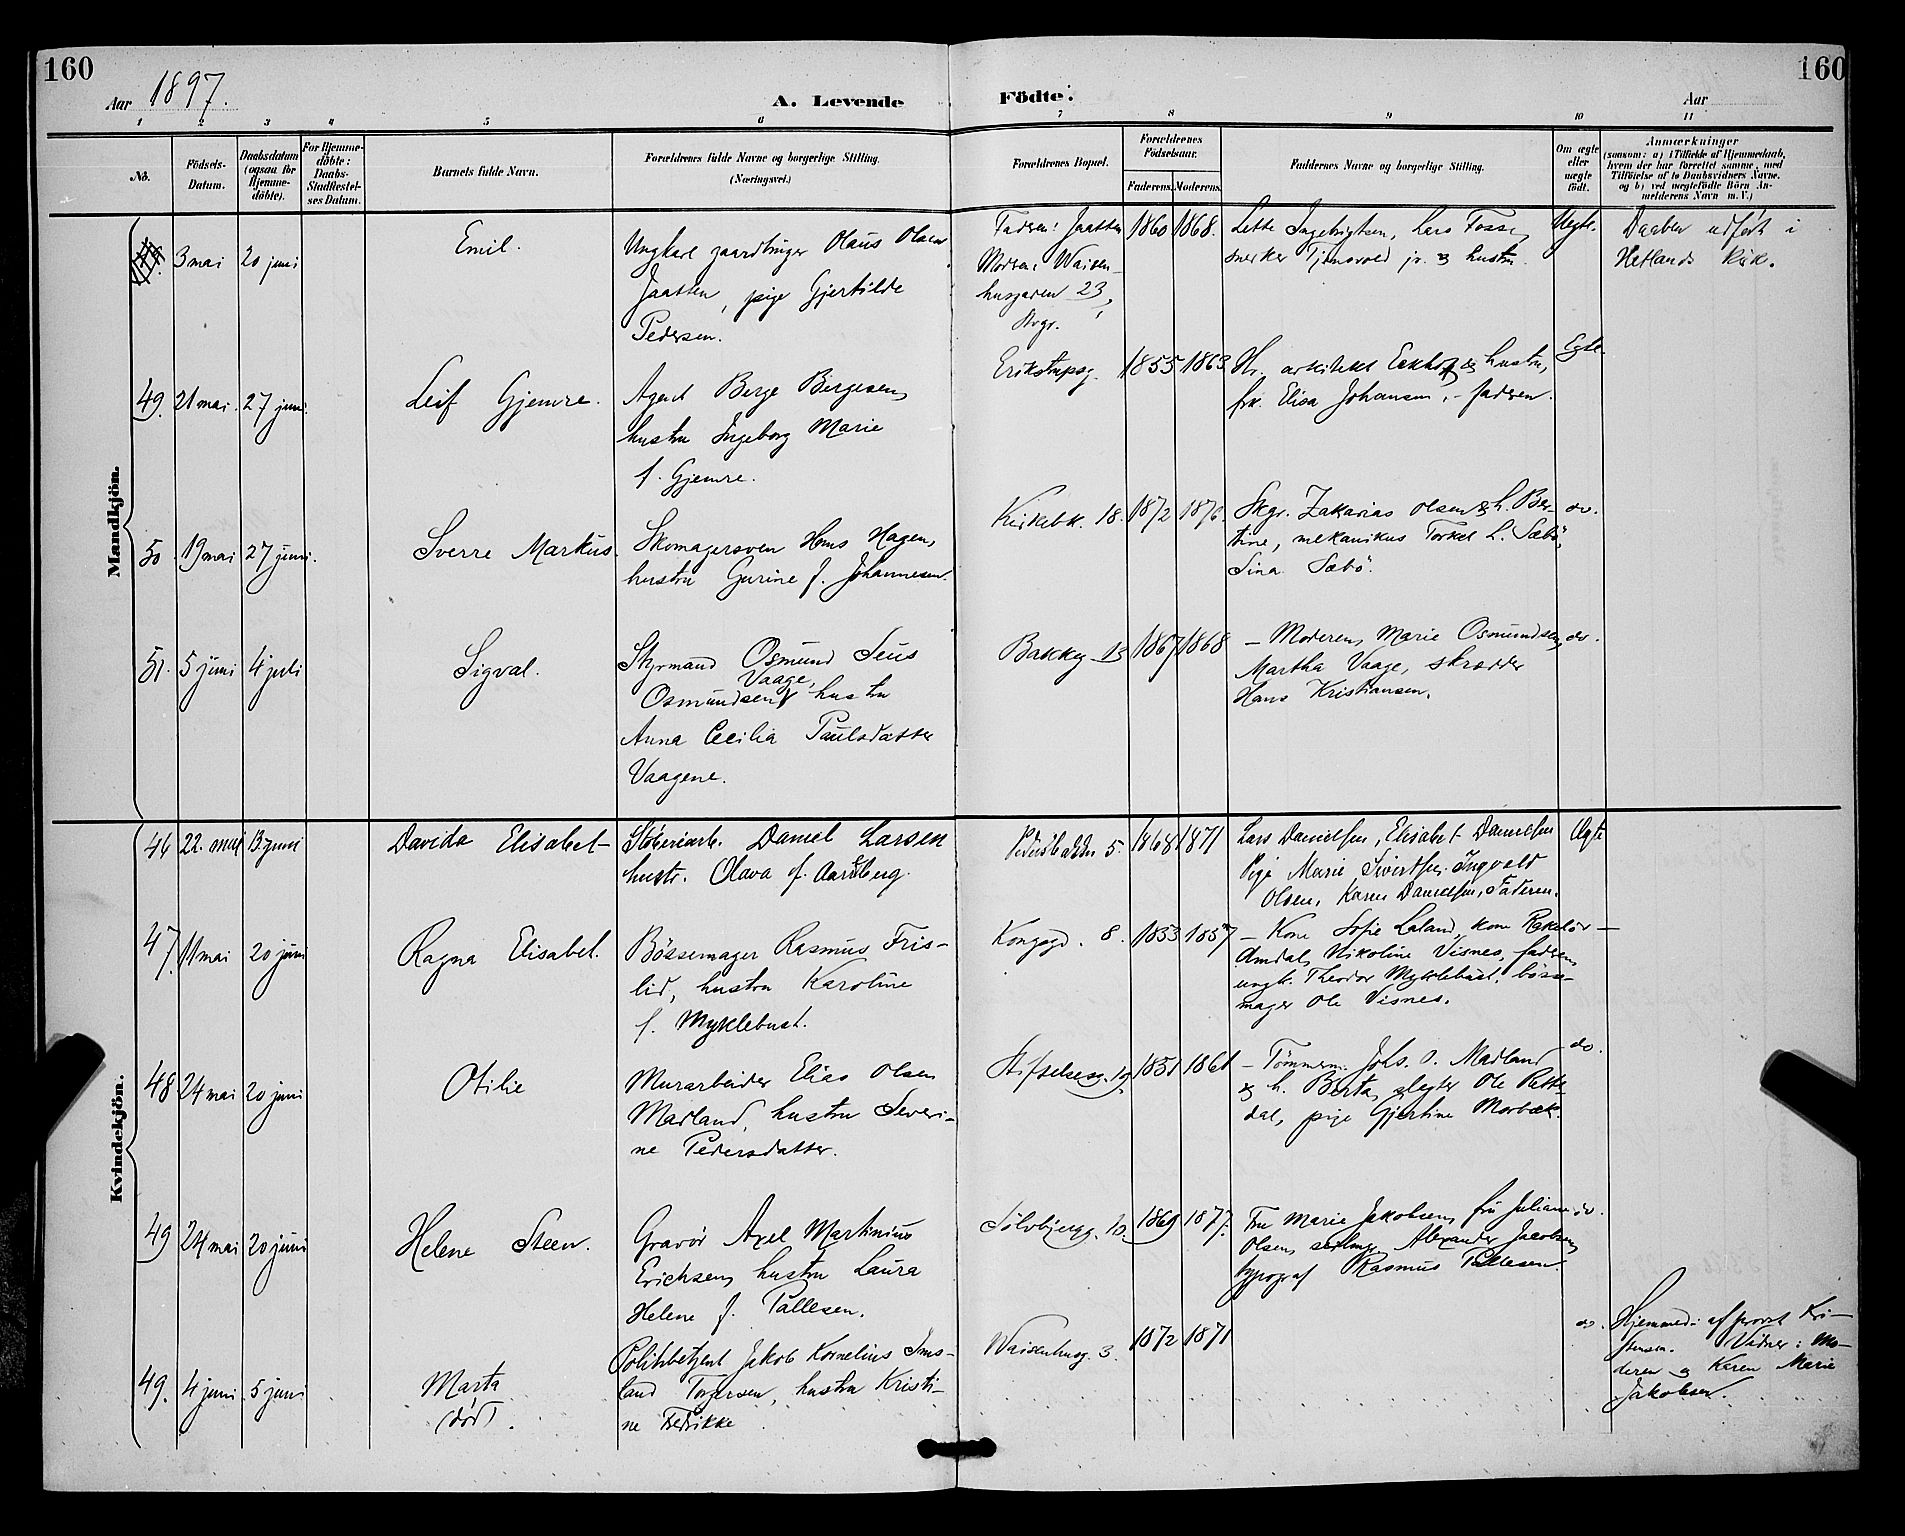 160
160
Aar 1897.
A. Levende
Födte.
Aar
1 2 3 4 5 6 7 8 9 10 11
No.
Födsels-
Datum.
Daabsdatum
(ogsaa for
Hjemme-
döbte).
For Hjemme-
döbte:
Daabs-
Stadfæstel-
ses Datum.
Barnets fulde Navn.
Forældrenes fulde Navne og borgerlige Stilling.
(Næringsvei.)
Forældrenes Bopæl.
Forældrenes
Födselsaar.
Faderens.
Moderens.
Faddernes Navne og borgerlige Stilling.
Om ægte
eller
uægte
födt.
Anmærkninger
(saasom: a) i Tilfælde af Hjemmedaab,
hvem der har forrettet samme, med
Tilföielse af to Daabsvidners Navne.
og b) ved uægtefödte Börn An-
melderens Navn m. V.)
Mandkjön.
3 mai
20 juni
Emil.
Ungkarl gaardbruger Olaus Olsen
Jaatten, pige Gjertilde
Pedersen.
Faderen: Jaatten
Moderen: Waisen-
husgaden 23,
Stvgr.
1860
1868.
Lette Ingebrigtsen, Lars Fosse,
snerker Tjensvold jr. & hustru.
Uegte.
Daaben udført i
Hetlands kirk.
49.
21 mai.
27 juni.
Leif Gjemre.
Agent Berge Bergesen,
hustru Ingeborg Marie
f. Gjemre.
Erikstrupsg.
1855
1863
Hr. arkitekt Eckhoff & hustru,
frk. Elisa Johansen, - faderen.
Egte.
50.
19 mai
27 juni.
Sverre Markus.
Skomagersven Hans Hagen,
hustru Gurine f. Johannesen.
Kirkebk. 18.
1872
1876.
Skgr. Zakarias Olsen & h. Ber-
tine, mekanikus Torkel L. Sæbö,
Sina Sæbö.
do.
51.
5 juni
4 juli
Sigval.
Styrmand Osmund Seus
Vaage,
Osmundsen, hustru
Anna Cecilia Paulsdatter
Vaagene.
Bakkeg 13
1867
1868
- Moderen, Marie Osmundsen,
Martha Vaage, skrædder
Hans Kristiansen.
do.
Kvindekjön.
46
22. mai
13 juni
Davida Elisabet
Støberiarb. Daniel Larsen
hustr. Olava f. Aarsberg.
Pedersbakken 5.
1868
1871
Lars Danielsen, Elisabet Danielsen
Pige Marie Sivertsen. Ingvald
Olsen, Karen Danielsen, Faderen.
Ægte
47.
11 mai
20 juni
Ragna Elisabet.
Bössemager Rasmus Fris-
lid, hustru Karoline
f. Myklebust.
Kongsgd. 8.
1853
1857
- Kone Sofie Laland, kone Rakel
Amdal, Nikoline Visnes, faderen,
ungk. Theodor Myklebust, bösse-
mager Ole Visnes.
48
24 mai
20 juni
Otilie
Murarbeider Elias Olsen
Madland, hustru Severi-
ne Pedersdatter.
Stiftelsesg. 19
1851
1861
- Tömmerm. Johs. O. Madland
& h. Berta, slagter Ole
dal, pige Gjertine Morbæk.
do.
49
24 mai
20 juni
Helene Steen.
Gravör Axel Martinius
Erichsen, hustru Laura
Helene f. Tallesen.
Sölvbjergg. 10.
1869
1877.
Fru Marie Jakobsen, fru Juliane
Olsen, Alexander Jacobsen,
typograf Rasmus Tallesen.
do.
49.
4 juni
5 juni
Marta
(död)
Politibetjent Jakob Kornelius Ims-
land Torgersen, hustru Kristi-
ne Fredrikke
Waisenhusg. 3.
1872
1871
do.
Hjemmed. af provst Kri-
stensen. Vidner: Mo-
deren & Karen Marie
Jakobsen.